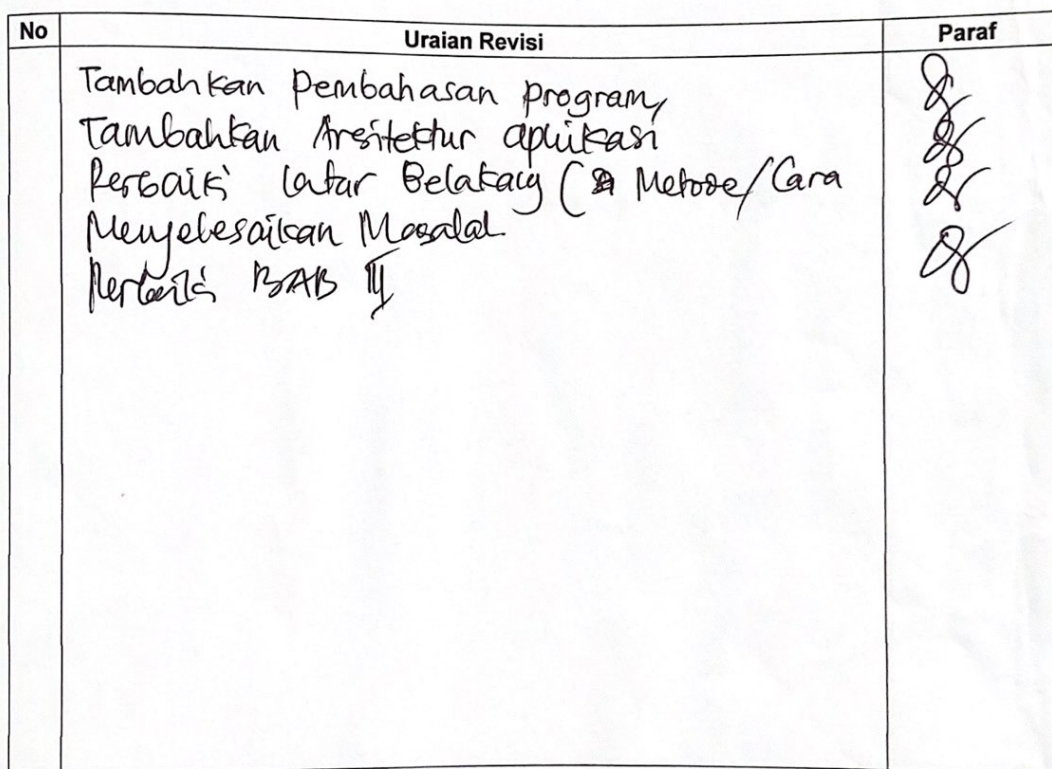 No Uraian Revisi Paraf
Tambahkan Pembahasan program,
Tambahkan Arsitektur aplikasi
Perbaiki Latar Belakang ( Metode/Cara
Menyelesaikan Masalah
Perbaiki BAB